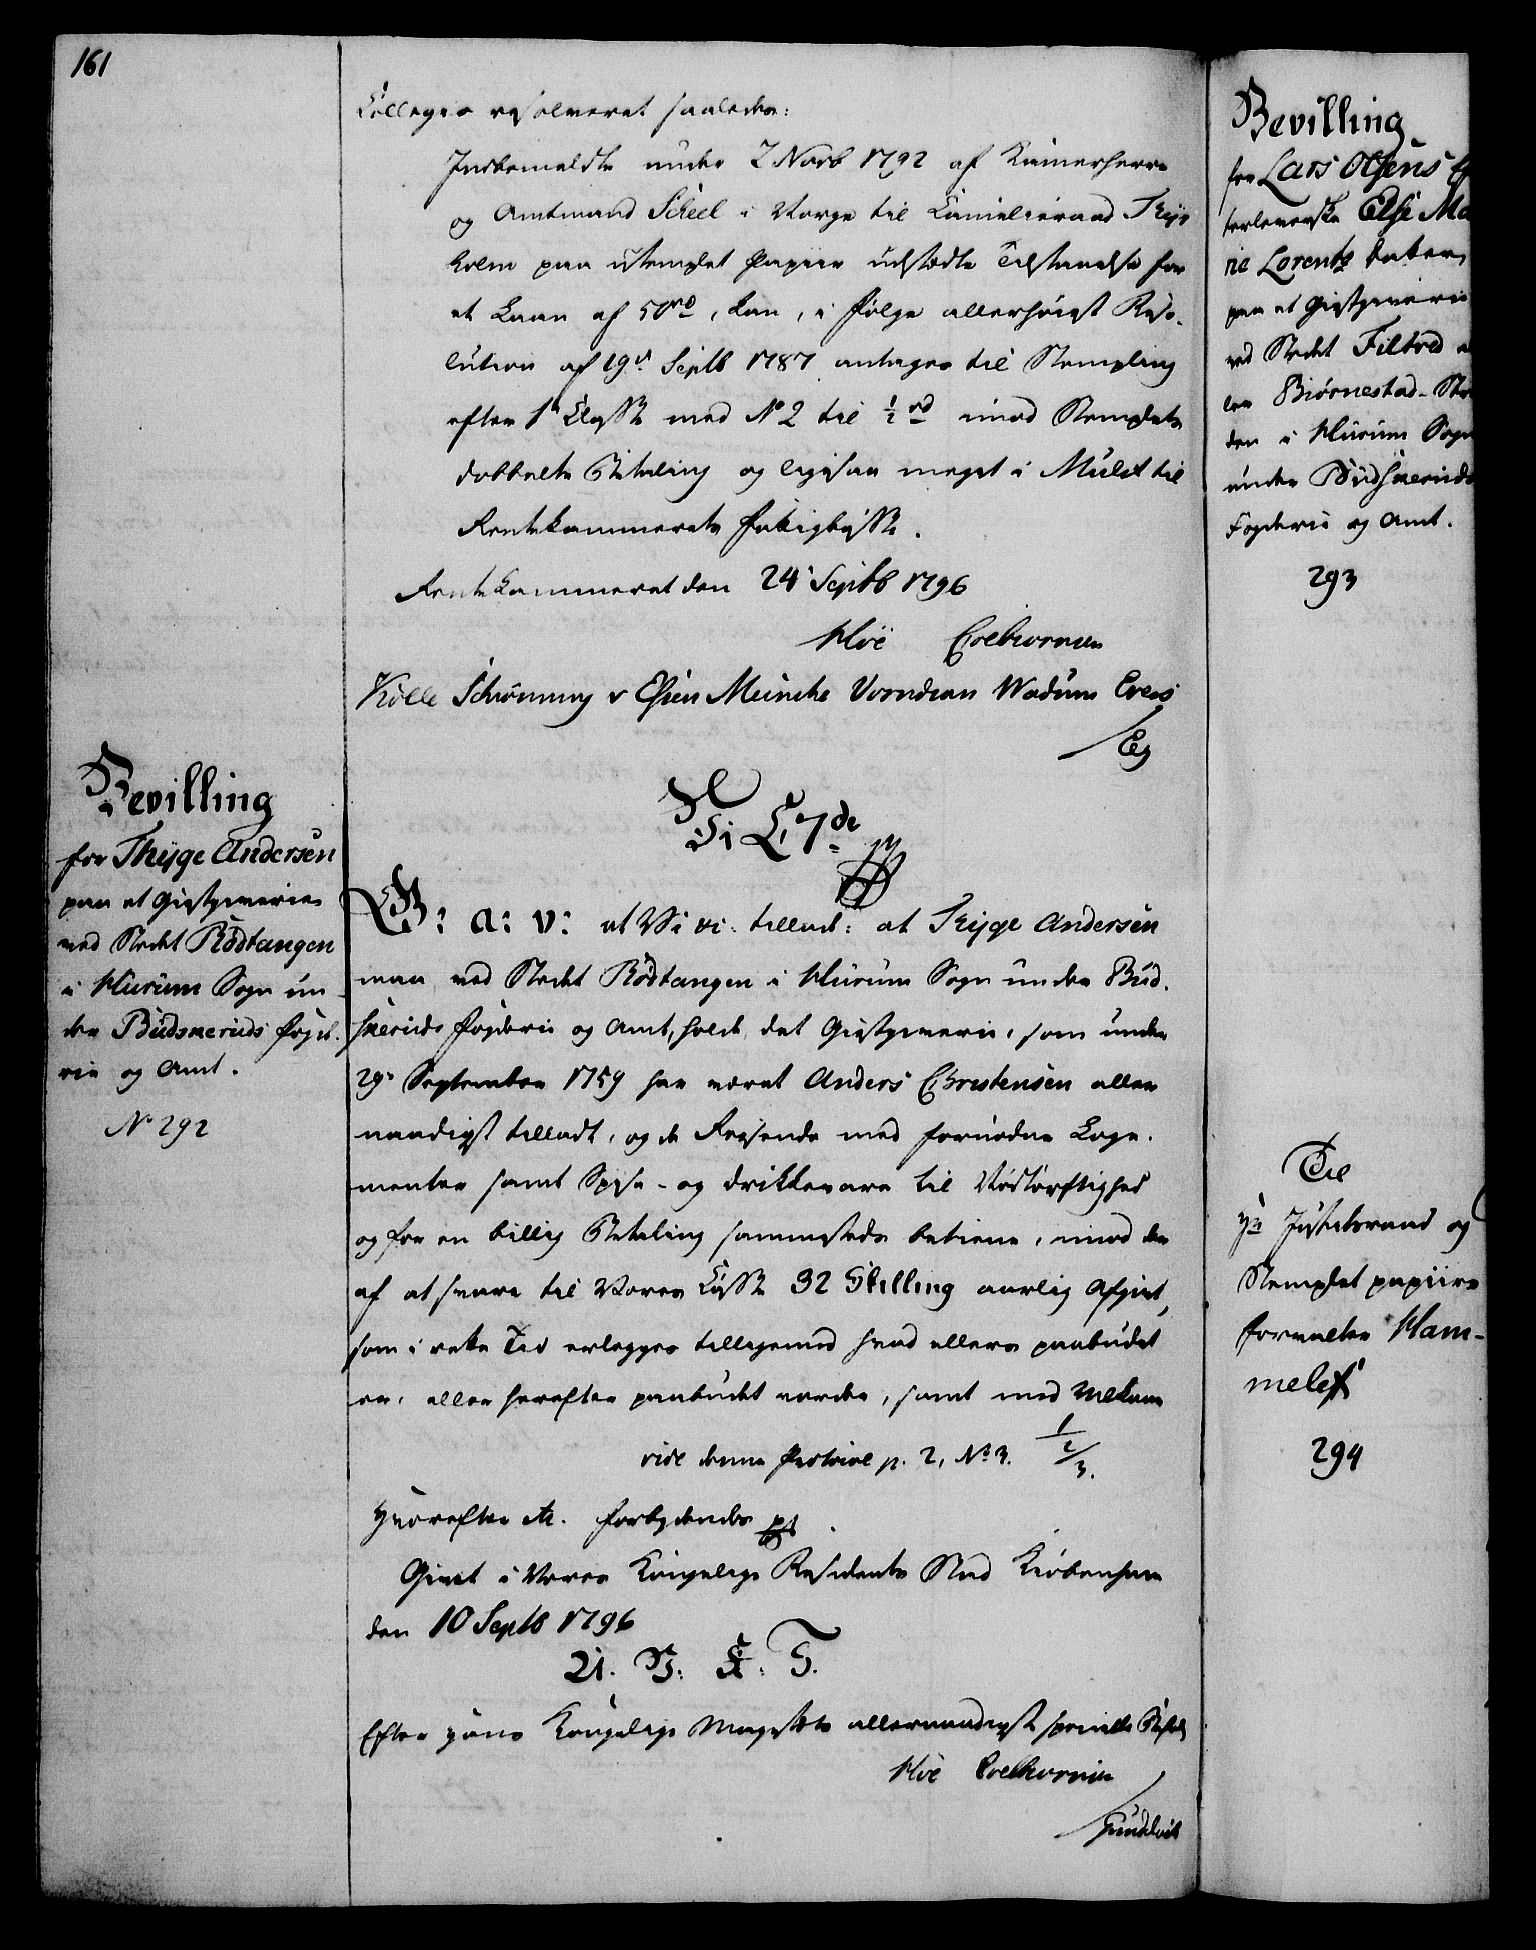 161
Collegio resolveret saaledes:
Indbemeldte under 7 Novb 1792 af Kamerherre
og Amtmand Scheel i Norge til Cancelieraad Thyge
holm paa ustemplet Papiir udstædte Tilstaaelse for
et Laan af 50 rd, kan, i følge allerhøiest Reso-
lution af 19de Septb 1787 antages til Stempling
efter 1te Classe med No 2 til ½ rd imod Stemplets
dobbelte Betaling og ligesaa meget i Mulct til
Rentekammerets fattigbøsse.
Rentekammeret den 24 Septb 1796
Moe Colbiornsen
Kølle Schrønning v Essen Meincke Vorndran Wadum
Vi C. 7de
Bevilling
for Thyge Andersen
paa et Giestgiverie
ved Stedet Rødtangen
i Hurum Sogn un-
der Budskeruds fogd-
rie og Amt.
No 292
G: A: V: at Vi vi: tillad: at Thyge Andersen
maa ved Stedet Rødtangen i Hurum Sogn under Bud-
skeruds fogderie og Amt, holde det Giestgiverie, som under
29 September 1759 har været Anders Christensen aller
naadigst tilladt, og de Reisende med fornødne Loge-
menter samt Spise- og drikkevare til Nødtørftighed
og for en billig Betaling sammesteds betiene, imod der
af at svare til Vores Casse 32 Skilling aarlig Afgivt,
som i rette Tid erlegges tilligemed hvad ellers paabudet
er, eller herefter paabudet vorder, samt med Velkaar
vide denne Protocol p. 2, No 3.
Hvorefter etc. Forbydendes
Givet i Vores Kongelige Residents Stad Kiøbenhavn
den 10 Septb 1796
U. V: K. S.
Efter Hans Kongelige Majestets allernaadigste specielle Befal
Moe Colbiornsen
Bevilling
for Lars Olsens Ef
terleverske Else Ma
rie Lorentz datter
paa et Giestgiverie
ved Stedet Filtved
ler Biørnestad-Stø
den i Hurum Sogn
under Budskeruds
Fogderie og Amt.
293
Til
Hr Justitsraad og
Stemplet papiirs
forvalter Ham-
meleff
294